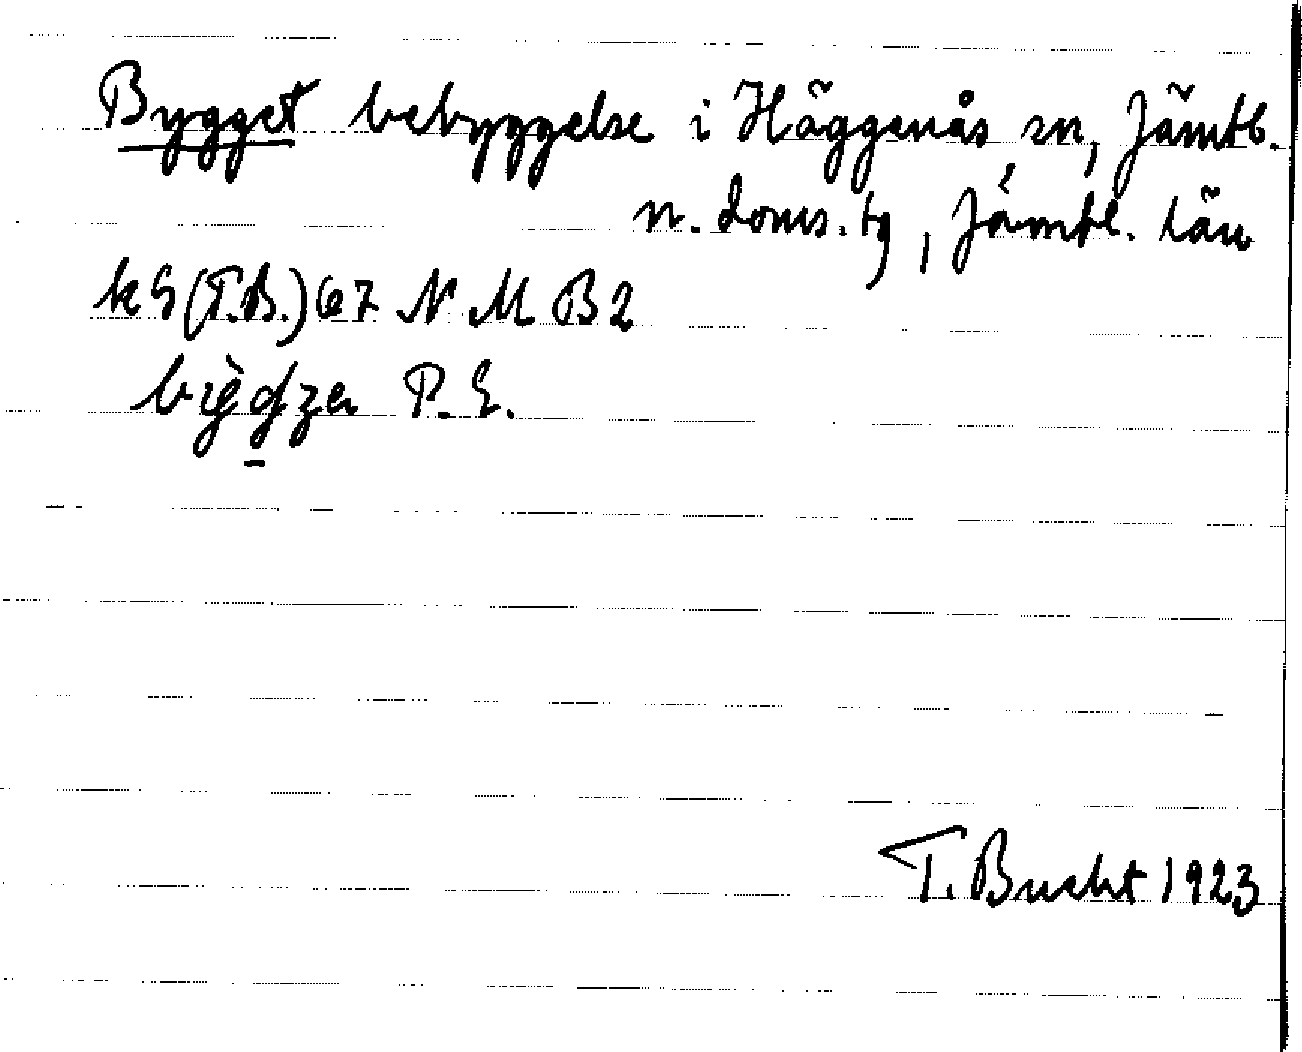 Bygget bebyggelse i Häggenås sn, Jämtl.
n. doms. tg, Jämtl. län
kS (T.B.) 67 N M B2
P. E.
T. Bucht 1923